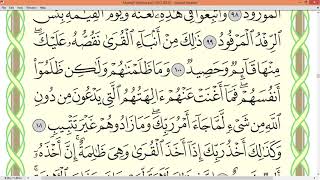 ٱلْمَوْرُودُ ٩٨ وَأُتْبِعُوا۟ فِى هَـٰذِهِۦ لَعْنَةً وَيَوْمَ ٱلْقِيَـٰمَةِ بِئْسَ
ٱلرِّفْدُ ٱلْمَرْفُودُ ٩٩ ذَٰلِكَ مِنْ أَنۢبَآءِ ٱلْقُرَىٰ نَقُصُّهُۥ عَلَيْكَ
مِنْهَا قَآئِمٌ وَحَصِيدٌ ١٠٠ وَمَا ظَلَمْنَـٰهُمْ وَلَـٰكِن ظَلَمُوٓا۟
أَنفُسَهُمْ فَمَآ أَغْنَتْ عَنْهُمْ ءَالِهَتُهُمُ ٱلَّتِى يَدْعُونَ مِن دُونِ
ٱللَّهِ مِن شَىْءٍ لَّمَّا جَآءَ أَمْرُ رَبِّكَ وَمَا زَادُوهُمْ غَيْرَ تَتْبِيبٍ ١٠١
وَكَذَٰلِكَ أَخْذُ رَبِّكَ إِذَآ أَخَذَ ٱلْقُرَىٰ وَهِىَ ظَـٰلِمَةٌ إِنَّ أَخْذَهُۥٓ